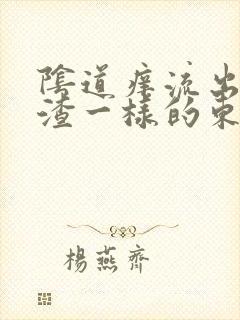 陰道痒流出
渣一樣的東
楊燕齊